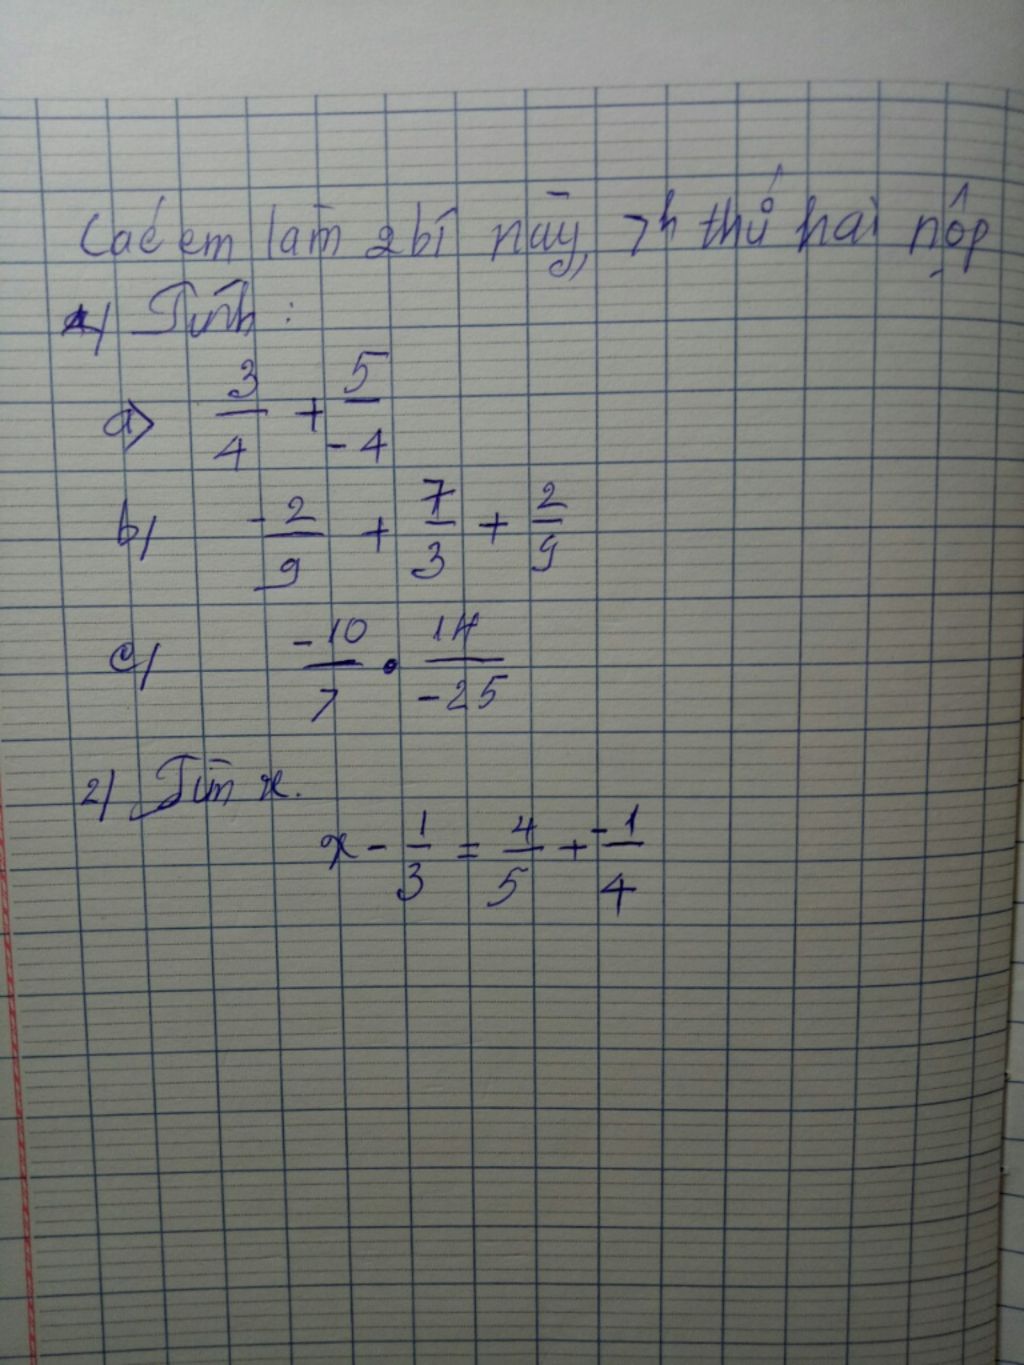 Các em làm 2 bì này, 7h thứ hai nộp
1/ Tính:
a) 3/4 + 5/-4
b/ -2/9 + 7/3 + 2/9
c/ -10/7 . 14/-25
2/ Tìm x.
x - 1/3 = 4/5 + -1/4